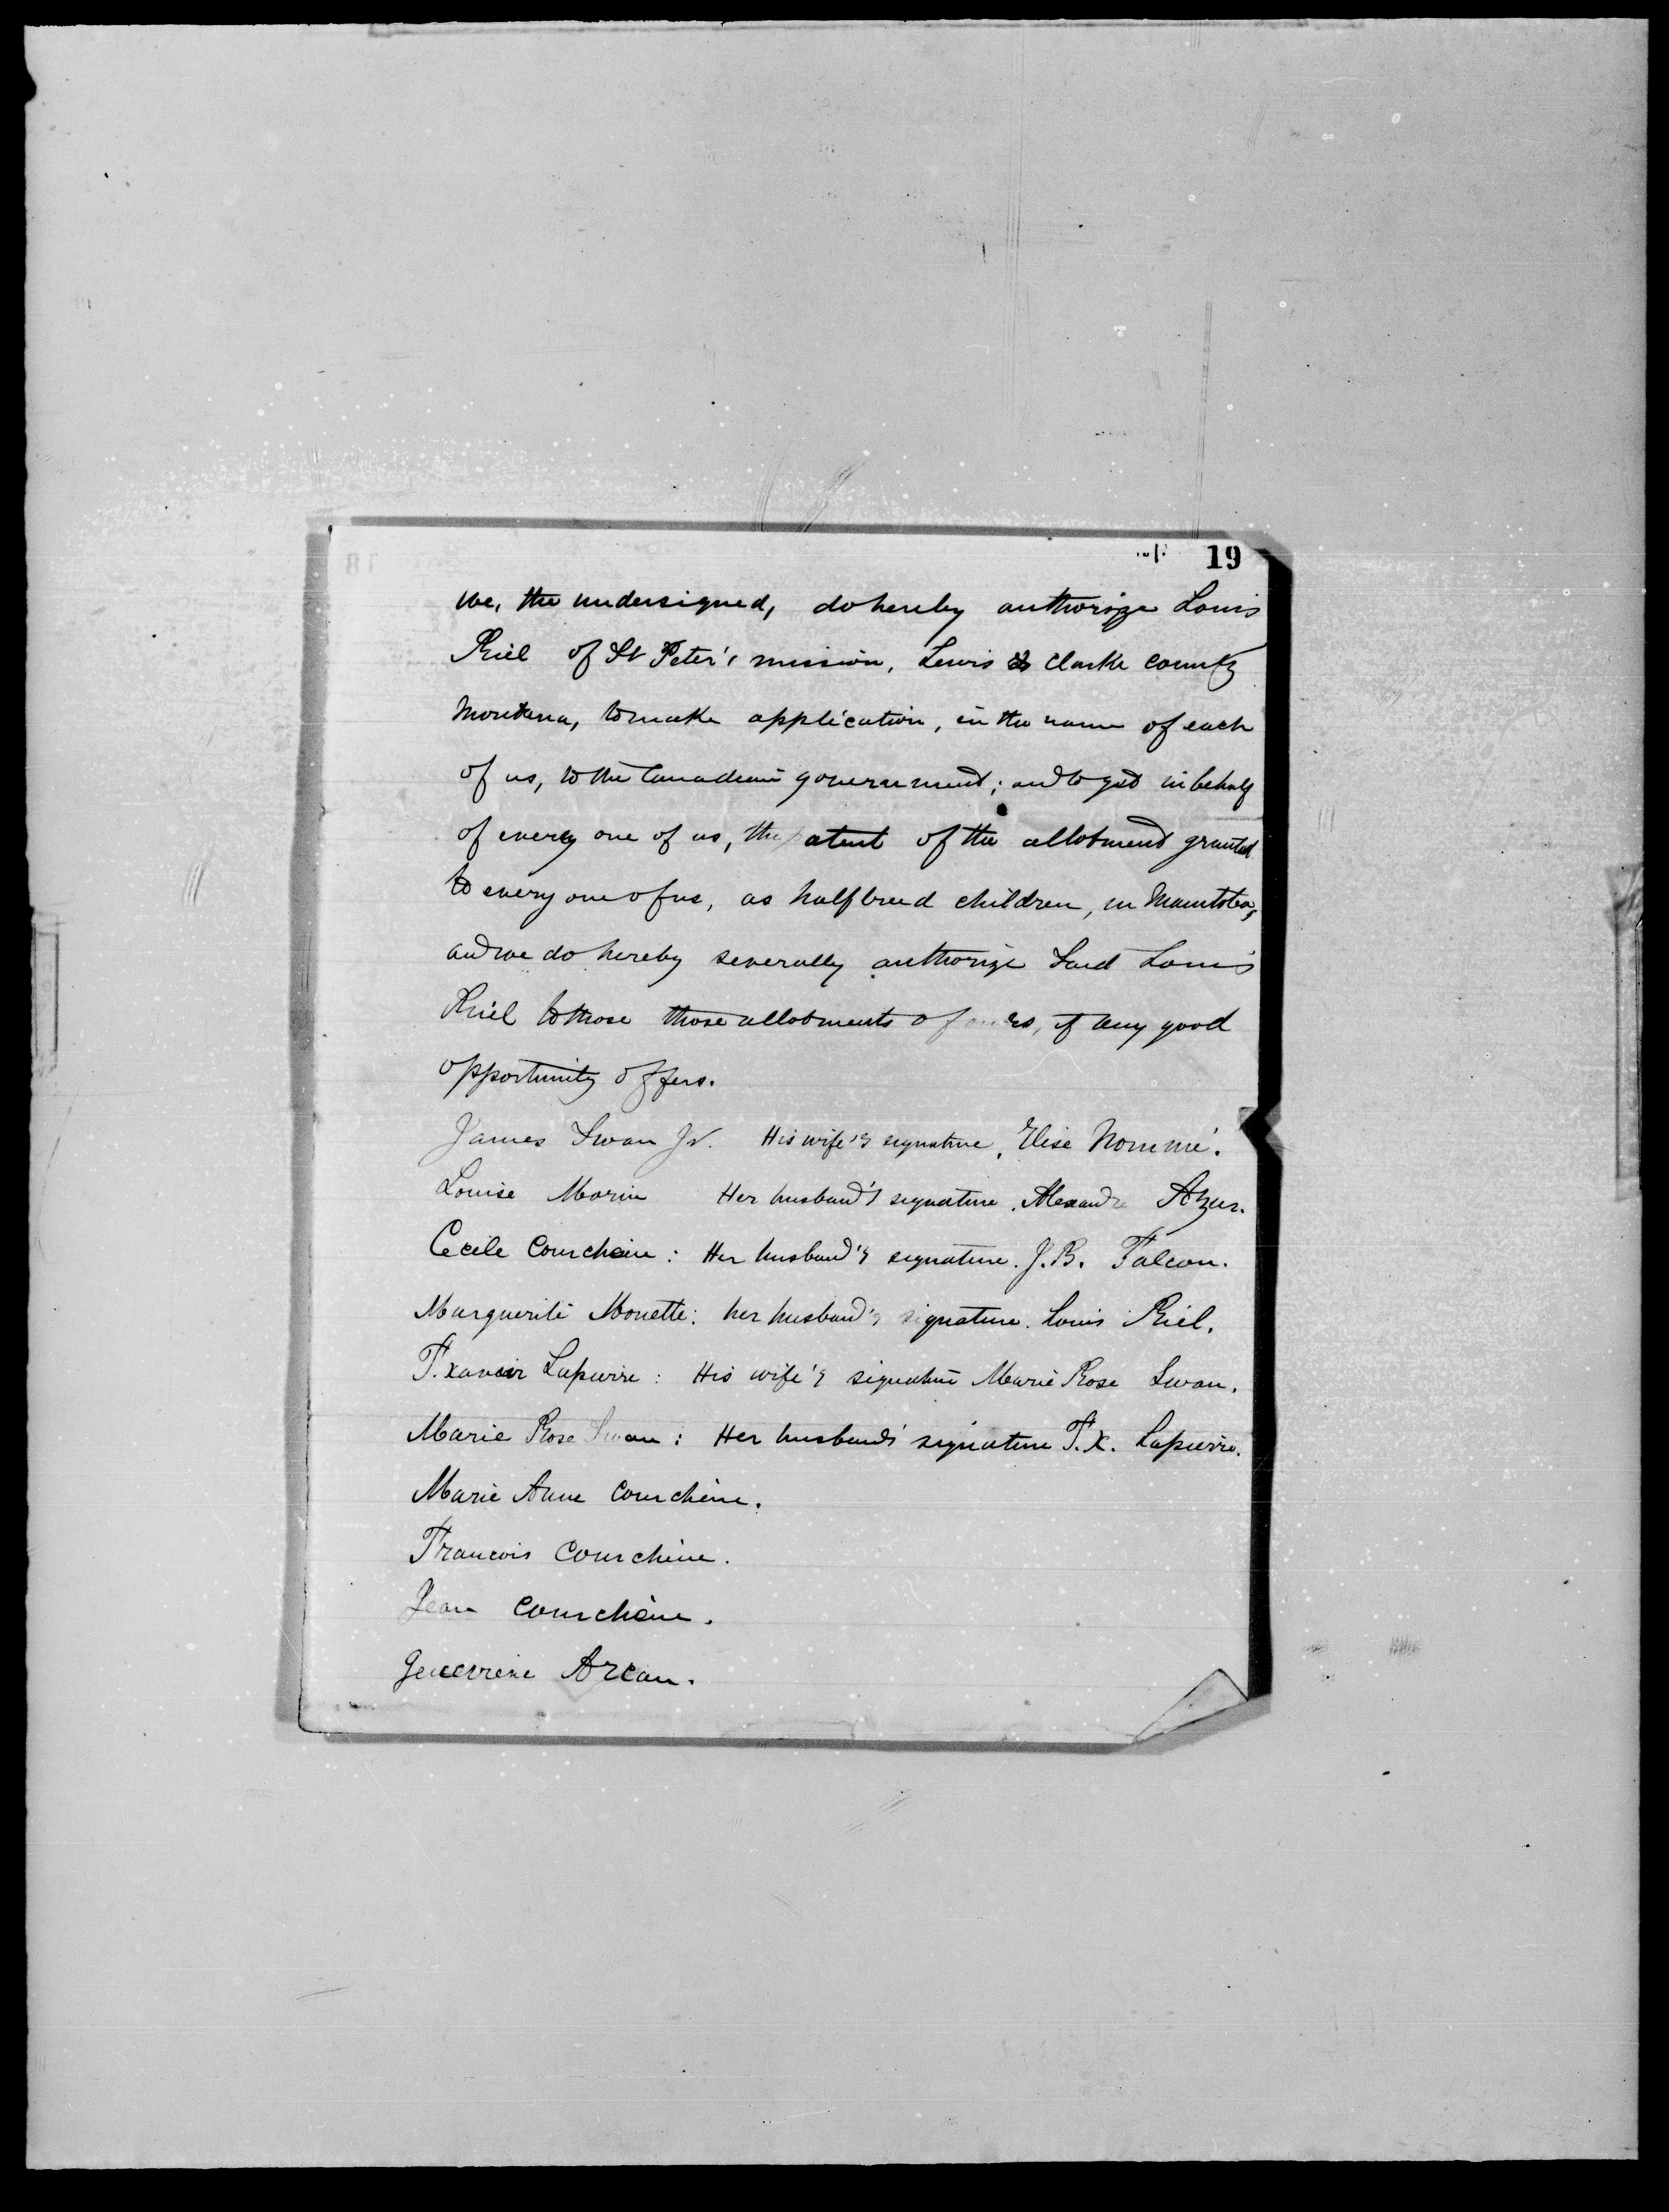 19
we, the undersigned, do hereby authorize Louis
Riel of St Peter's mission, Lewis & Clarke county
Montana, to make application, in the name of each
of us, to the Canadian government; and to get in behalf
of every one of us, the patent of the allotment granted
to every one of us, as halfbreed children, in Manitoba,
and we do hereby severally authorize Said Louis
Riel to those allotments of ours, if any good
opportunity offers.
James Swan Jr. His wife's signature, Elise Nommé.
Louise Morin Her husband's signature. Alexandre Azur.
Cecile Courchene: Her husband's signature. J.B. Falcon.
Marguerite Monette: her husband's signature. Louis Riel.
F. Xavier Lapierre: His wife's signature Marie Rose Swan.
Marie Rose Swan: Her husband's signature F.X. Lapierre.
Marie Anne Courchene.
Francois Courchene.
Jean Courchene.
Genevieve Arcan.